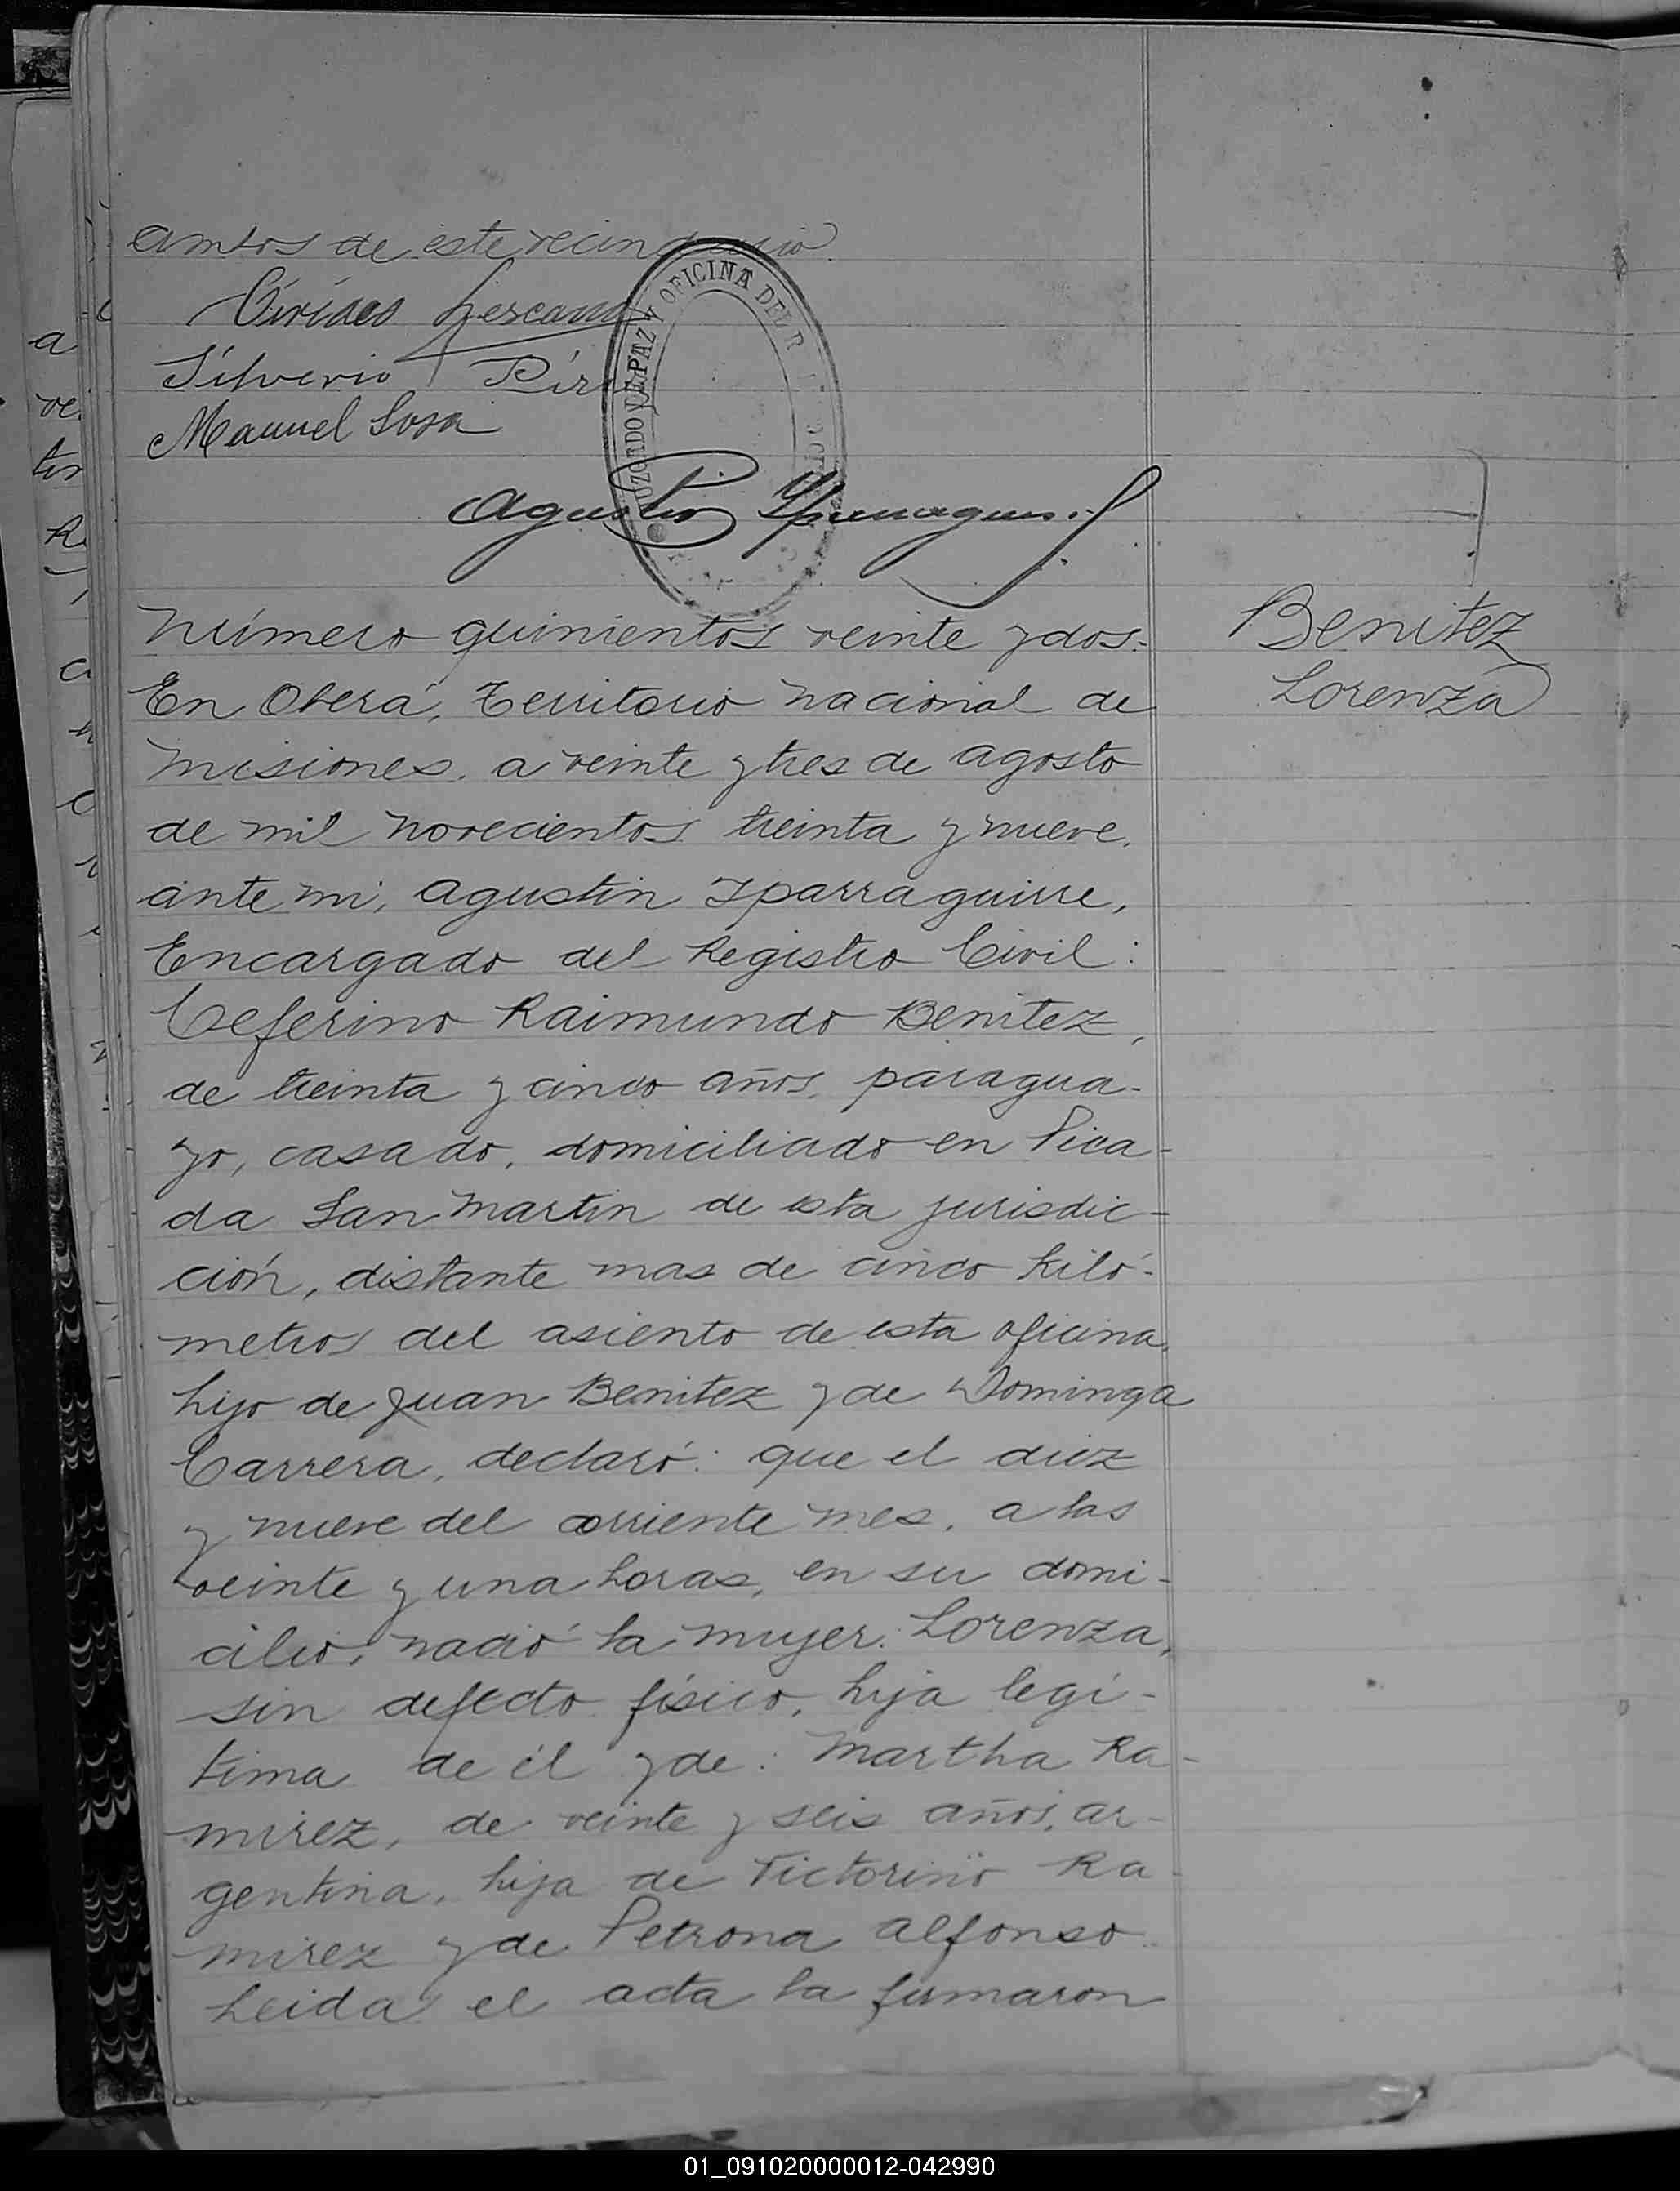 ambos de este vecindario.
Silverio
Manuel Sosa
JUZGADO DE PAZ Y OFICINA DEL
Agustin
Número quinientos veinte y dos.-
Benitez
Lorenza
En Oberá, Territorio Nacional de
Misiones, a veinte y tres de agosto
de mil novecientos treinta y nueve,
ante mi, Agustin Yparraguirre,
Encargado del Registro Civil:
Ceferino Raimundo Benitez,
de treinta y cinco años, paragua-
yo, casado, domiciliado en Pica-
da San Martin de esta jurisdic-
ción, distante mas de cinco kiló-
metros del asiento de esta oficina,
hijo de Juan Benitez y de Dominga
Carrera, declaró: que el diez
y nueve del corriente mes, a las
veinte y una horas, en su domi-
cilio, nació la mujer: Lorenza,
sin defecto físico, hija legí-
tima de él y de: Martha Ra-
mirez, de veinte y seis años, ar-
gentina, hija de Victorino Ra-
mirez y de Petrona Alfonso.
Leida el acta la firmaron
01_091020000012-042990